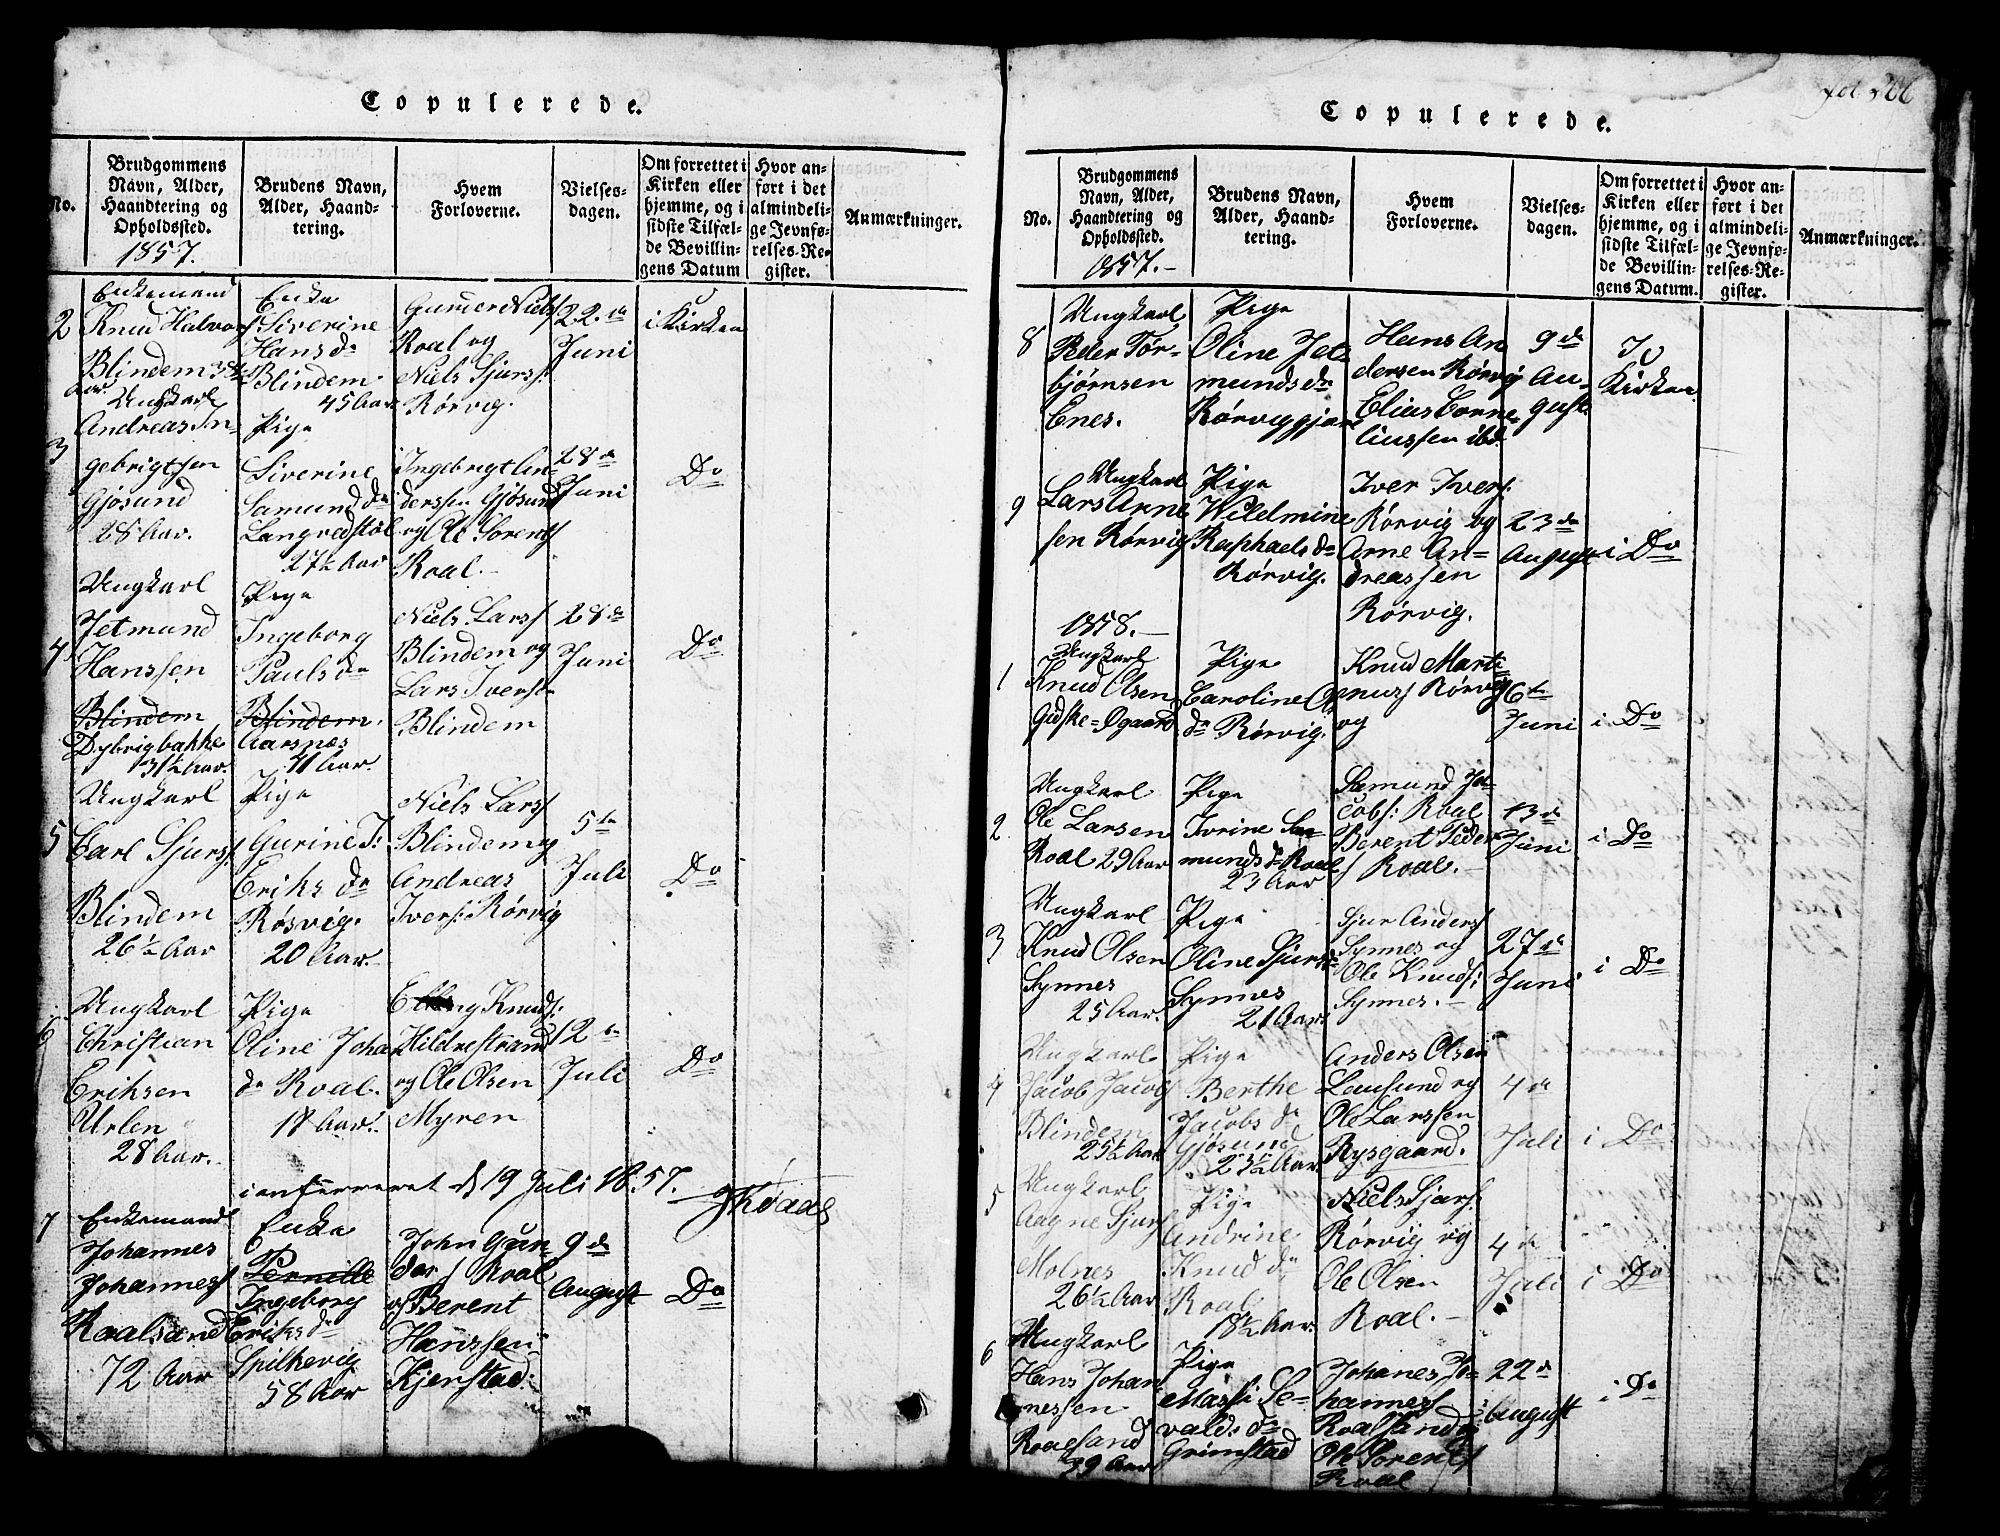 Copulerede.
No.
Brudgommens Navn, Alder, Haandtering og Opholdssted.
1857.
Brudens Navn, Alder, Haandtering.
Hvem Forloverne.
Vielsesdagen.
Om forrettet i Kirken eller hjemme, og i sidste Tilfælde Bevillingens Datum
Hvor anført i det almindelige Jevnførelses-Register.
Anmærkninger.
2
Enkemand
Knud Halvors
Blindem 38
Aar.
Enke
Siverine
Hans dr
Blindem
45 Aar
Gunder Niels
Roal og
Niels Sjurs:
Rørvig.
22
Juni
i Kirken
3
Ungkarl
Andreas In-
gebrigtsen
Gjøsund
28 Aar.
Pige
Siverine
Samund dr
Langvedstøl
27½ Aar
Ingebrigt An-
derssen Gjøsund
og Ole Sorents
Roal.
28 de
Juni
Do
4
Ungkarl
Jetmund
Hanssen
Blindem
Dybvigbakke
31½ Aar.
Pige
Ingeborg
Pauls dr
Blindem.
Aarsnes
41 Aar.
Niels Larss
Blindem og
Lars Ivers
Blindem
28 de
Juni
Do
5
Ungkarl
Carl Sjurs:
Blindem
26½ Aar
Pige
Gurine J:
Eriks dr
Røsvig.
20 Aar.
Niels Larss
Blindem og
Andreas
Ivers: Rørvig
5 te
Juli
Do
6
Ungkarl
Christian
Eriksen
Urlen
28 Aar.
Pige
Oline Johan
dr Roal.
18 Aar.
Elling Knuds:
Hildrestrand
og Ole Olsen
Myren
12 te
Juli
Do
Conferreret d 19 Juli 1857.
7
Enkemand
Johannes
Johanness
Roalsand
72 Aar
Enke
Pernille
Ingeborg
Eriks dr
Spilkevig
58 Aar
John Gun-
ders Roal
og Berent
Hanssen
Kjerstad.
9 de
August
Do
Copulerede.
No.
Brudgommens Navn, Alder, Haandtering og Opholdssted.
1857.
Brudens Navn, Alder, Haandtering.
Hvem Forloverne.
Vielsesdagen.
Om forrettet i Kirken eller hjemme, og i sidste Tilfælde Bevillingens Datum.
Hvor anført i det almindelige Jevnførelses-Register.
Anmærkninger.
8
Ungkarl
Peder Tor-
bjørnsen
Enes.
Pige
Oline Jet
munds dr
Rørviggjære
Hans An
dersen Rørvig
Elias Corne
liussen ibd.
9 de
Au-
gust.
I
Kirken
9
Ungkarl
Lars Arne
sen Rørvig
Pige
Wilelmine
Raphaels dr
Rørvig.
Iver Ivers:
Rørvig og
Arne An-
dreassen
Rørvig.
23 de
August
i Do
1858.
1
Ungkarl
Knud Olsen
Giske=Øgaard
Pige
Caroline
dr Rørvig.
Knud Marti
nuss Rørvig
og
6 te
Juni
i Do
2
Ungkarl
Ole Larsen
Roal 29 Aar
Pige
Ivrine Sa
munds dr Roal
23 Aar
Samund Ja
cobs: Roal
Berent Peder
s Roal.
13 de
Juni
i Do
3
Ungkarl
Knud Olsen
Synnes
25 Aar.
Pige
Oline Sjurs dr
Synnes
21 Aar.
Sjur Anders
Synnes og
Ole Knuds:
Synnes.
27 de
Juni
i Do
4
Ungkarl
Jacob Jacobs
Blindem
25½ Aar
Pige
Berthe
Jacobs dr
Gjøsund
23½ Aar.
Anders Olsen
Lausund og
Ole Larssen
Rysgaard.
4 de
Juli
i Do
5
Ungkarl
Aagne Sjurs
Molnes
26½ Aar
Pige
Andrine
Knud dr
Roal
18½ Aar.
Niels Sjurs:
Rørvig og
Ole Olsen
Roal.
4 de
Juli
i Do
6
Ungkarl
Hans Johan
nessen
Roalsand
39 Aar
Pige
Massi Se-
valds dr
Grimstad
Johanes Jo-
hanness
Roalsand og
Ole Sorents
Roal
22 de
August
i Do